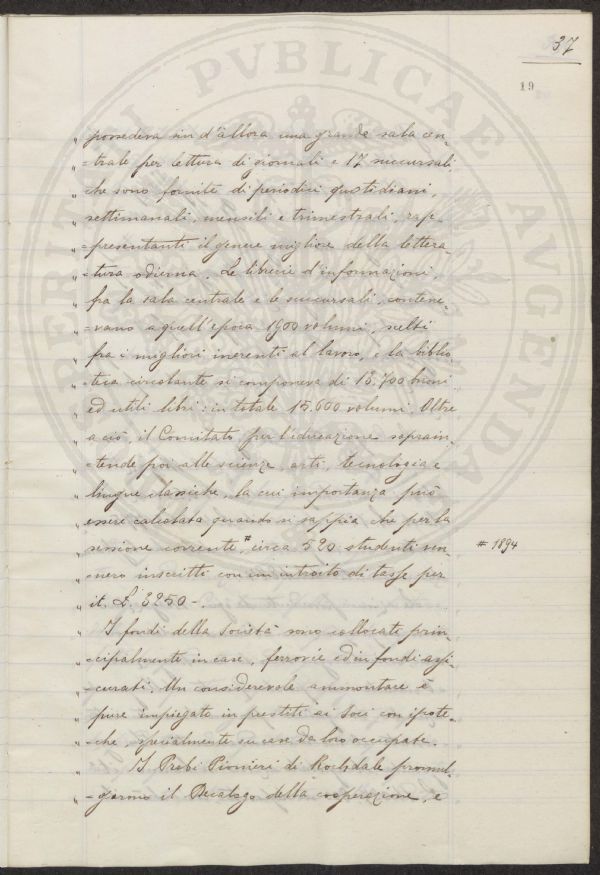 37
19
" possedeva sin d'allora una grande sala cen-
" -trale per lettura di giornali e 17 succursali,
" che sono fornite di periodici quotidiani,
" settimanali, mensili e trimestrali, rap-
" -presentanti il genere migliore della lettera-
" -tura odierna. Le librerie d'informazioni,
" fra la sala centrale e le succursali, contene-
" -vano a quell'epoca 1900 volumi, scelti
" fra i migliori inerenti al lavoro, e la biblio
" teca circolante si componeva di 13.700 buoni
" ed utili libri: in totale 15.600 volumi. Oltre
" a ciò, il Comitato per l'educazione soprain-
" -tende poi alle scienze, arti, tecnologia e
" lingue classiche, la cui importanza può
" essere calcolata quando si sappia che per la
" sessione corrente, # circa 520 studenti ven-
# 1894
" nero inscritti con un introito di tasse per
" it. £. 3250 -.
" I fondi della Società sono collocati prin-
" -cipalmente in case, ferrovie ed in fondi assi-
" -curati. Un considerevole ammontare è
" pure impiegato in prestiti ai Soci con ipote-
" -che, specialmente su case da loro occupate.
" I Probi Pionieri di Rochdale promul-
" -garono il Decalogo della cooperazione, e
PVBLICAE
AVGENDAE